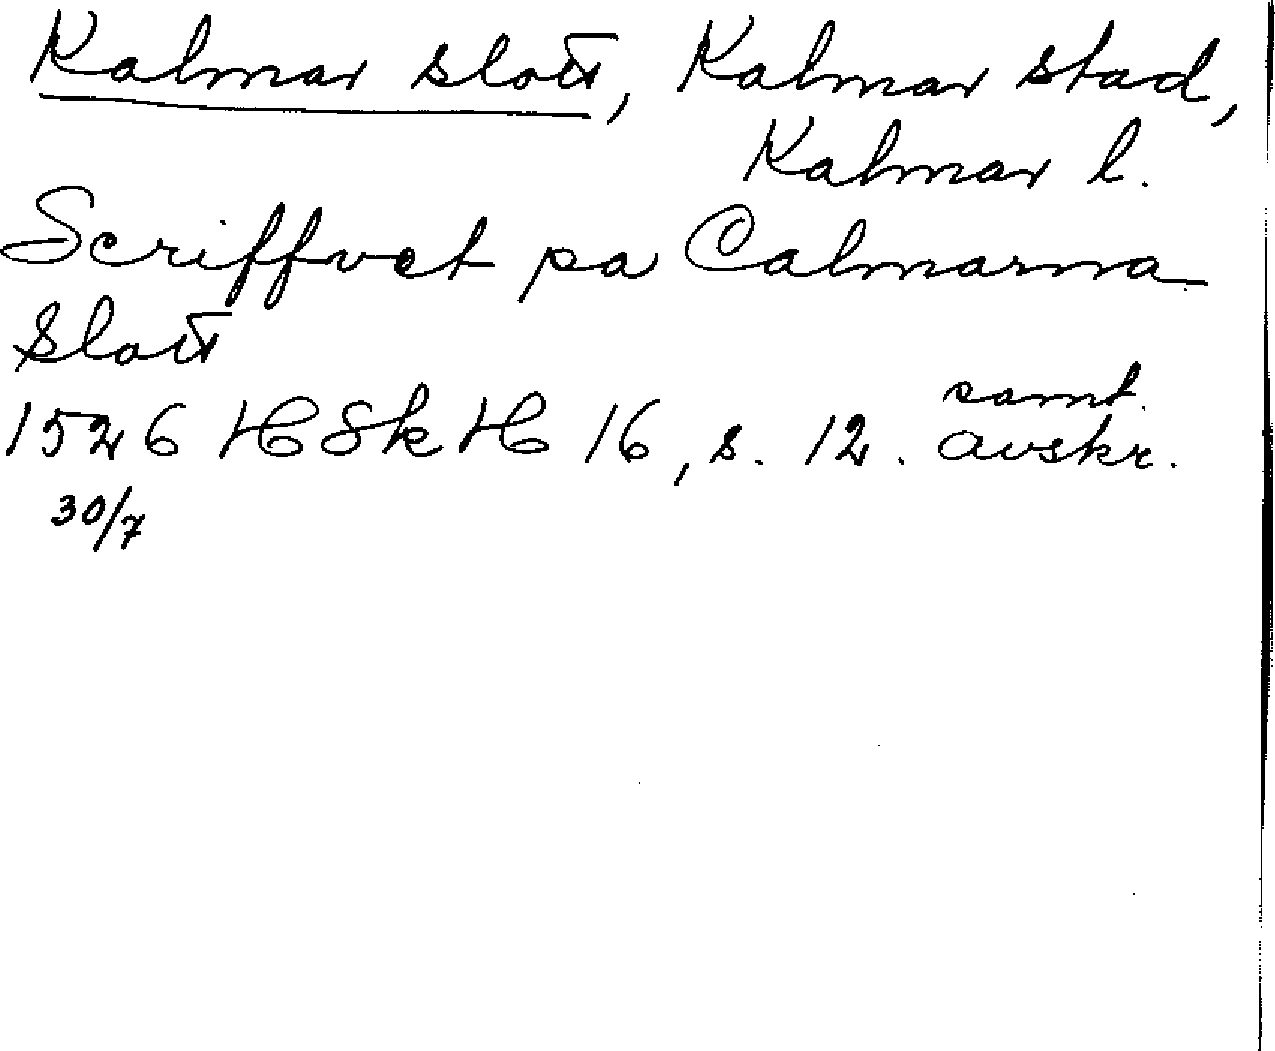 Kalmar slott, Kalmar stad,
Kalmar l.
Scriffvet pa Calmarna
Slott
1526 HSkH 16, s. 12. samt.
avskr.
30/7